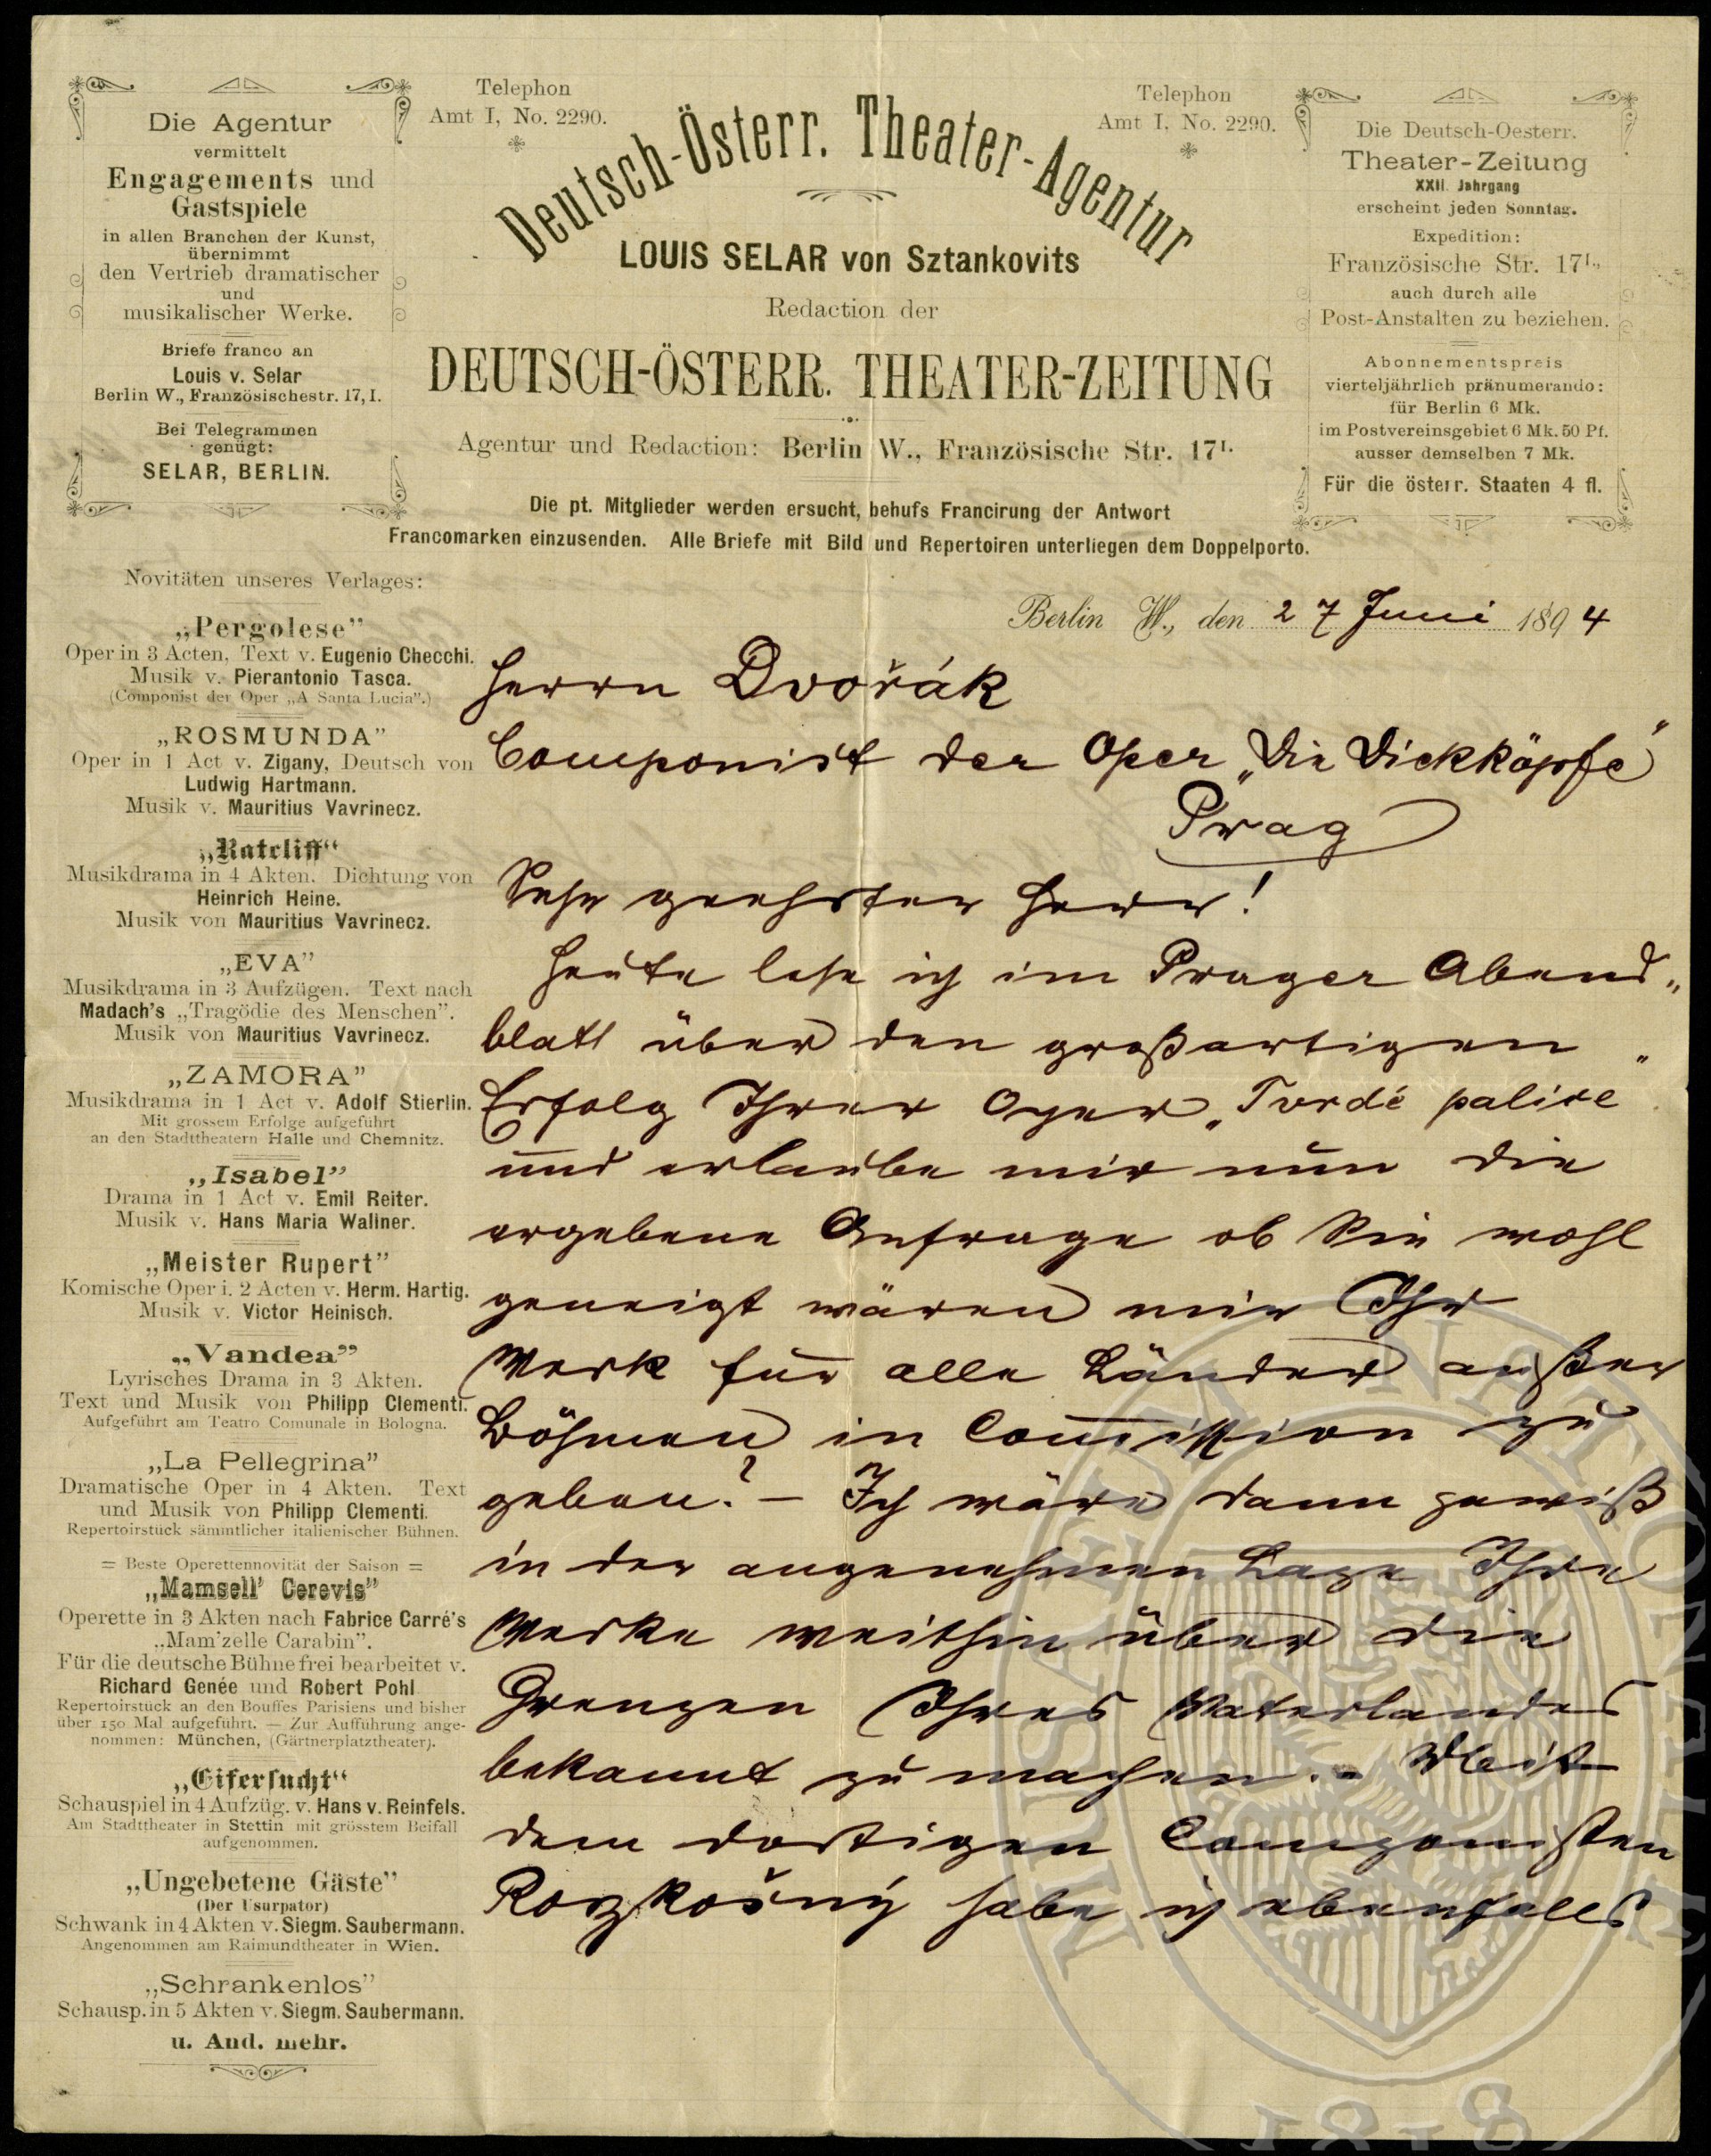 Die Agentur
vermittelt
Engagements und
Gastspiele
in allen Branchen der Kunst,
übernimmt
den Vertrieb dramatischer
und
musikalischer Werke.
Briefe franco an
Louis v. Selar
Berlin W., Französischestr. 17, I.
Bei Telegrammen
genügt:
SELAR, BERLIN.
Telephon
Amt I, No. 2290.
Telephon
Amt I, No. 2290.
Deutsch-Österr. Theater-Agentur
LOUIS SELAR von Sztankovits
Redaction der
DEUTSCH-ÖSTERR. THEATER-ZEITUNG
Agentur und Redaction: Berlin W., Französische Str. 17 I.
Die pt. Mitglieder werden ersucht, behufs Francirung der Antwort
Francomarken einzusenden. Alle Briefe mit Bild und Repertoiren unterliegen dem Doppelporto.
Die Deutsch-Oesterr.
Theater-Zeitung
XXII. Jahrgang
erscheint jeden Sonntag.
Expedition:
Französische Str. 17 I.,
auch durch alle
Post-Anstalten zu beziehen.
Abonnementspreis
vierteljährlich pränumerando:
für Berlin 6 Mk.
im Postvereinsgebiet 6 Mk. 50 Pf.
ausser demselben 7 Mk.
Für die österr. Staaten 4 fl.
Novitäten unseres Verlages:
„Pergolese”
Oper in 3 Acten, Text v. Eugenio Checchi.
Musik v. Pierantonio Tasca.
(Componist der Oper „A Santa Lucia”.)
„ROSMUNDA”
Oper in 1 Act v. Zigany, Deutsch von
Ludwig Hartmann.
Musik v. Mauritius Vavrinecz.
„Ratcliff“
Musikdrama in 4 Akten. Dichtung von
Heinrich Heine.
Musik von Mauritius Vavrinecz.
„EVA”
Musikdrama in 3 Aufzügen. Text nach
Madach's „Tragödie des Menschen”.
Musik von Mauritius Vavrinecz.
„ZAMORA”
Musikdrama in 1 Act v. Adolf Stierlin.
Mit grossem Erfolge aufgeführt
an den Stadttheatern Halle und Chemnitz.
„Isabel”
Drama in 1 Act v. Emil Reiter.
Musik v. Hans Maria Wallner.
„Meister Rupert”
Komische Oper i. 2 Acten v. Herm. Hartig.
Musik v. Victor Heinisch.
„Vandea”
Lyrisches Drama in 3 Akten.
Text und Musik von Philipp Clementi.
Aufgeführt am Teatro Comunale in Bologna.
„La Pellegrina”
Dramatische Oper in 4 Akten. Text
und Musik von Philipp Clementi.
Repertoirstück sämmtlicher italienischer Bühnen.
= Beste Operettennovität der Saison =
„Mamsell' Cerevis”
Operette in 3 Akten nach Fabrice Carré's
„Mam'zelle Carabin”.
Für die deutsche Bühne frei bearbeitet v.
Richard Genée und Robert Pohl
Repertoirstück an den Bouffes Parisiens und bisher
über 150 Mal aufgeführt. — Zur Aufführung ange-
nommen: München, (Gärtnerplatztheater).
„Eifersucht“
Schauspiel in 4 Aufzüg. v. Hans v. Reinfels.
Am Stadttheater in Stettin mit grösstem Beifall
aufgenommen.
„Ungebetene Gäste”
(Der Usurpator)
Schwank in 4 Akten v. Siegm. Saubermann.
Angenommen am Raimundtheater in Wien.
„Schrankenlos”
Schausp. in 5 Akten v. Siegm. Saubermann.
u. And. mehr.
Berlin W., den 27 Juni 1894
Herrn Dvořák
Componist der Oper „Die Dickköpfe”
Prag
Sehr geehrter Herr!
Heute lese ich im Prager Abend„
blatt über den großartigen
Erfolg Ihrer Oper „Tvrdé palice”
und erlaube mir nun die
ergebene Anfrage ob Sie wohl
geneigt wären mir Ihr
Werk für alle Länder außer
Böhmen in Comission zu
geben? – Ich wäre dann gewiß
in der angenehmen Lage Ihre
Werke weithin über die
Grenzen Ihres Vaterlandes
bekannt zu machen. – Mit
dem dortigen Componisten
Rozkošný habe ich ebenfalls
MUSAEUM NATIONALE
1818